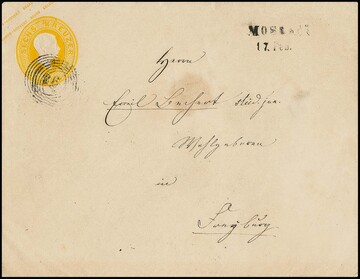 MOSBACH
17. FEB.
Herrn
Emil Bechert stud. jur.
Wohlgeboren
in
Freyburg